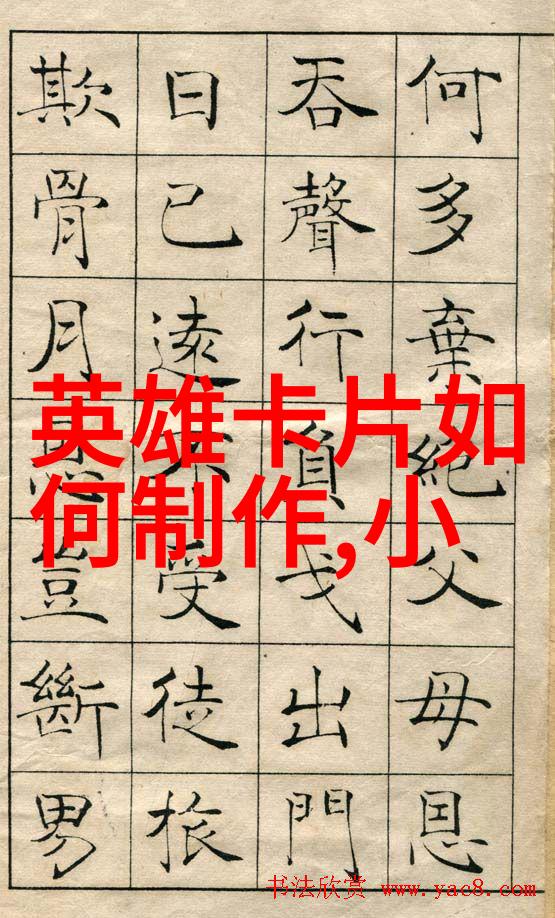 何多棄絕父母恩
吞聲行負戈出門
日已遠不受徒旅
欺骨月恩豈斷男
英雄卡片如
何制作,小
书法欣赏 www.yac8.com